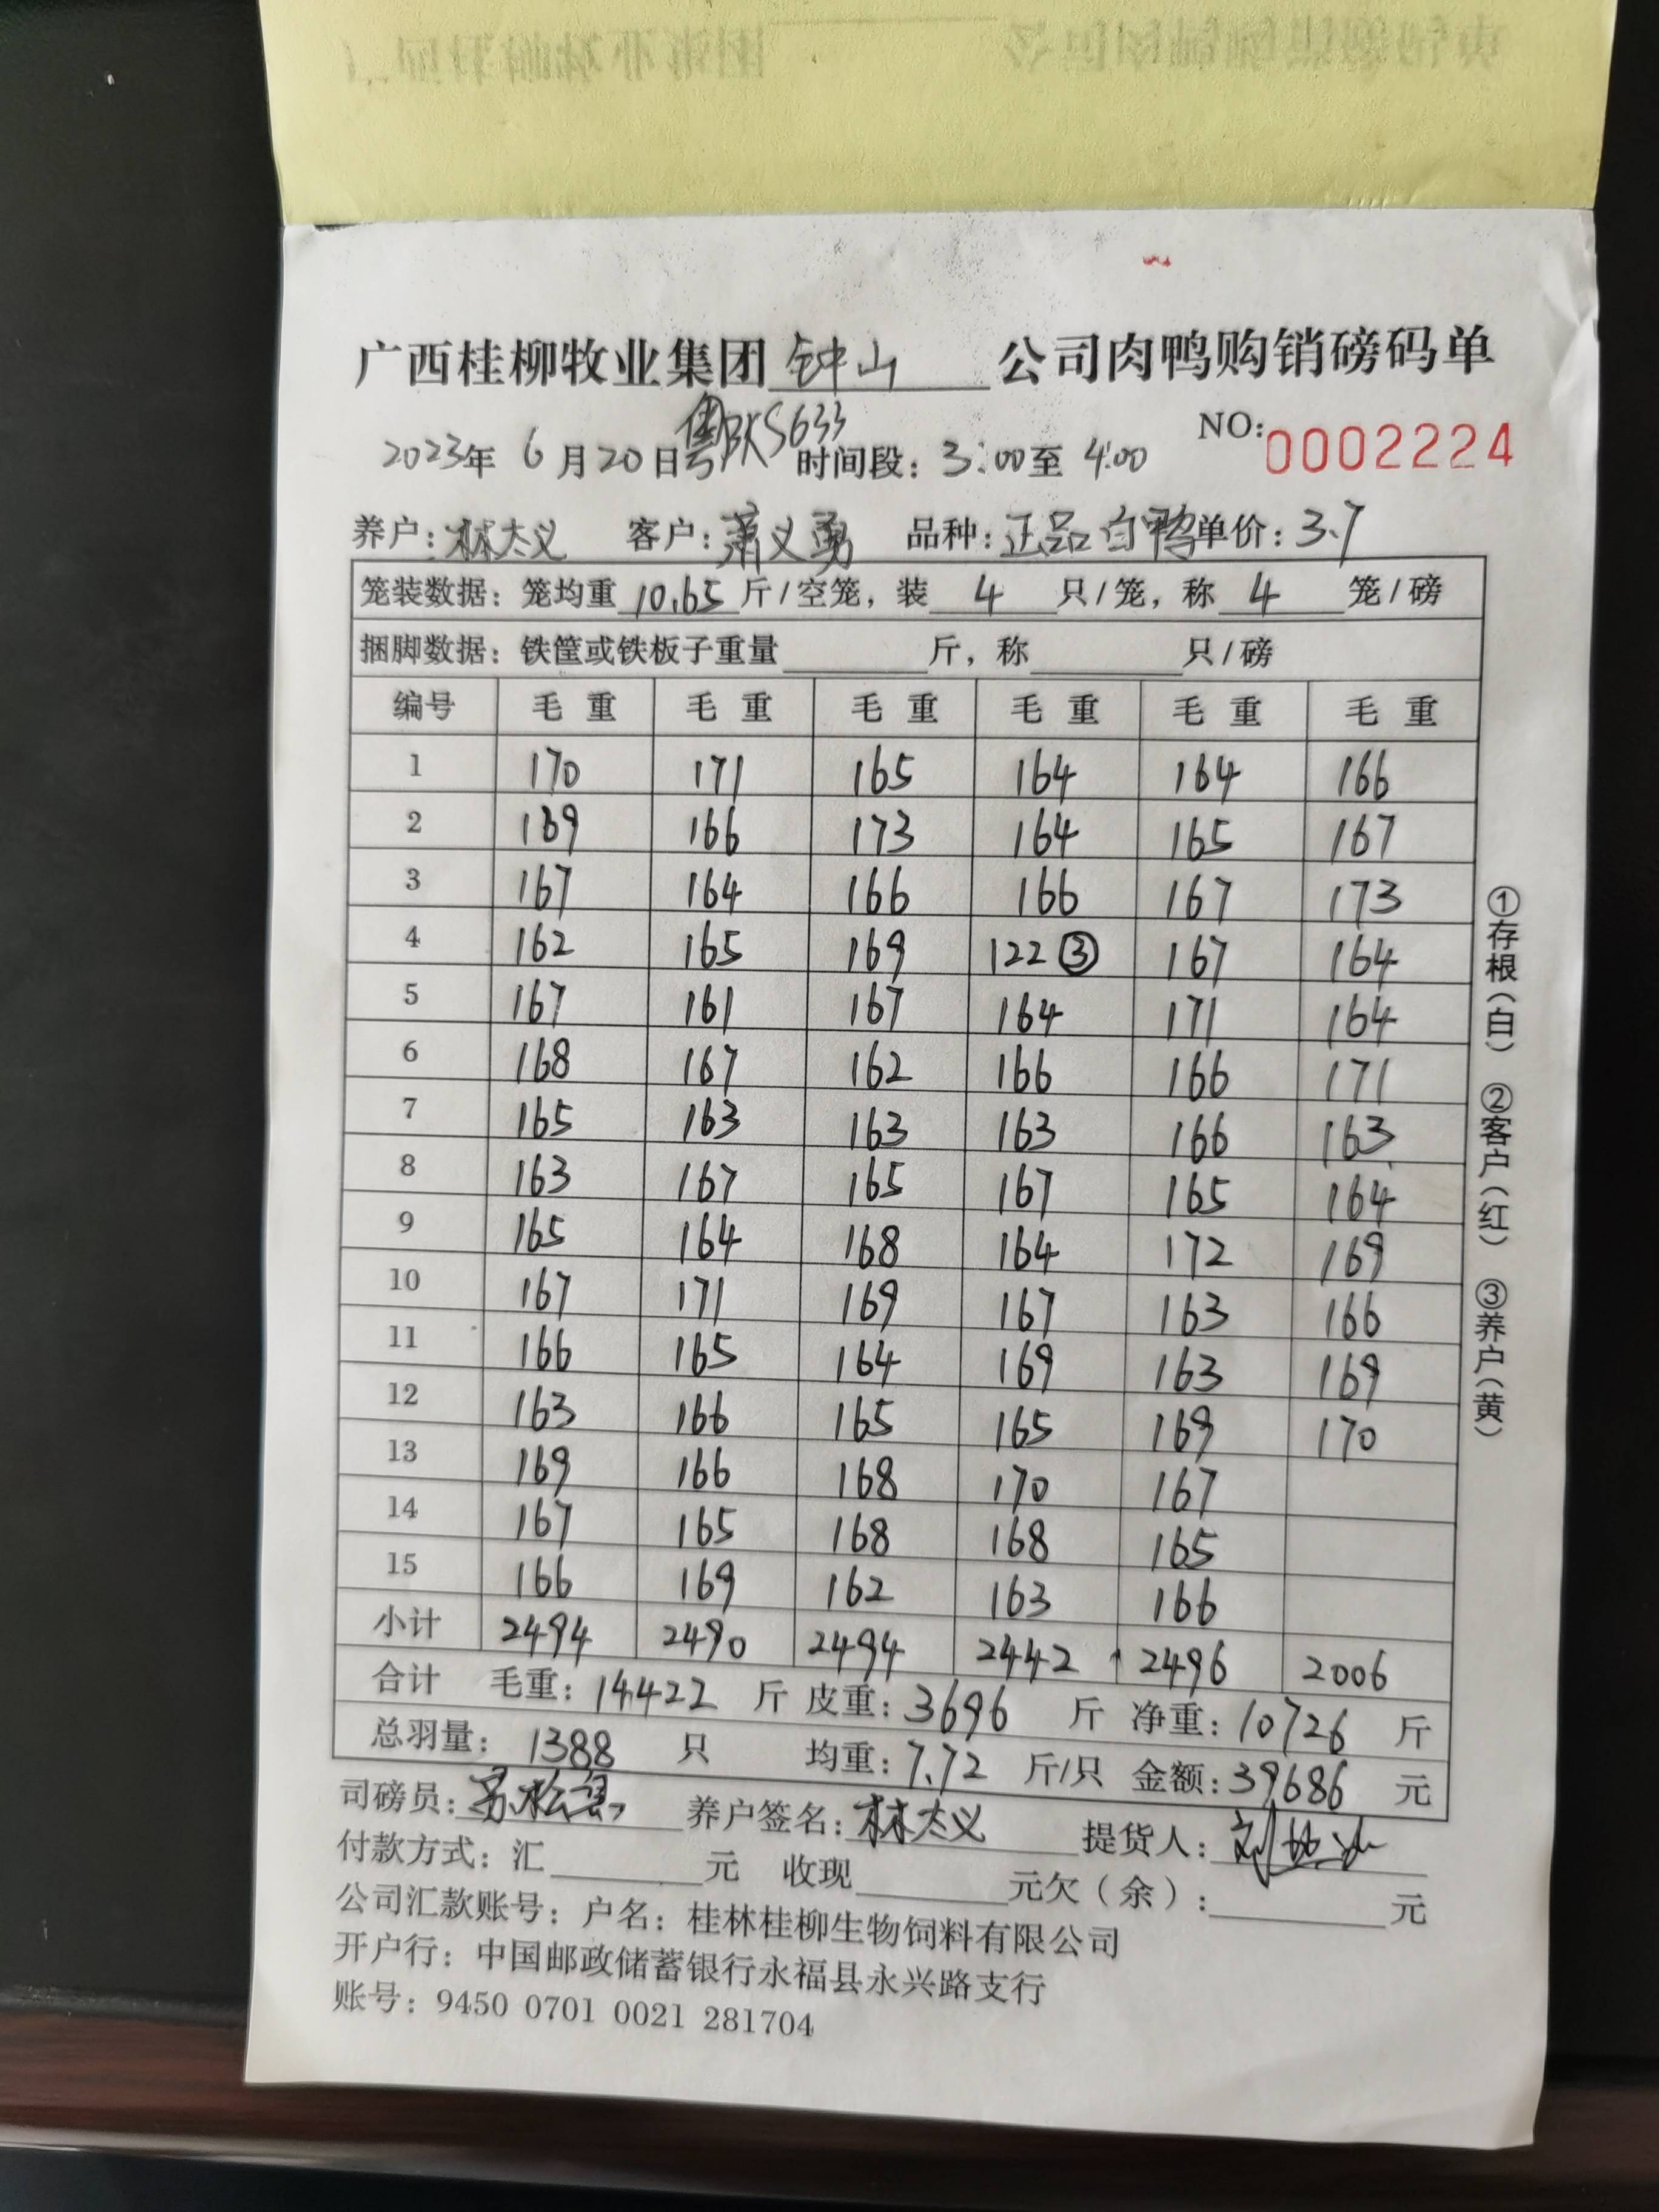 广西桂柳牧业集团 钟山 公司肉鸭购销磅码单
粤BKS633
NO: 0002224
2023年 6月20日 时间段: 3:00至 4:00
养户: 林太义 客户: 萧义勇 品种: 正品白鸭 单价: 3.7
笼装数据: 笼均重 10.65 斤/空笼, 装 4 只/笼, 称 4 笼/磅
捆脚数据: 铁筐或铁板子重量 斤, 称 只/磅
编号 毛重 毛重 毛重 毛重 毛重 毛重
1 170 171 165 164 164 166
2 169 166 173 164 165 167
3 167 164 166 166 167 173
4 162 165 169 122③ 167 164
5 167 161 167 164 171 164
6 168 167 162 166 166 171
7 165 163 163 163 166 163
8 163 167 165 167 165 164
9 165 164 168 164 172 169
10 167 171 169 167 163 166
11 166 165 164 169 163 169
12 163 166 165 165 169 170
13 169 166 168 170 167
14 167 165 168 168 165
15 166 169 162 163 166
小计 2494 2490 2494 2442 2496 2006
合计 毛重: 14422 斤 皮重: 3696 斤 净重: 10726 斤
总羽量: 1388 只 均重: 7.72 斤/只 金额: 39686 元
司磅员: 养户签名: 林太义 提货人: 刘
付款方式: 汇 元 收现 元欠(余): 元
公司汇款账号: 户名: 桂林桂柳生物饲料有限公司
开户行: 中国邮政储蓄银行永福县永兴路支行
账号: 9450 0701 0021 281704
①存根(白) ②客户(红) ③养户(黄)